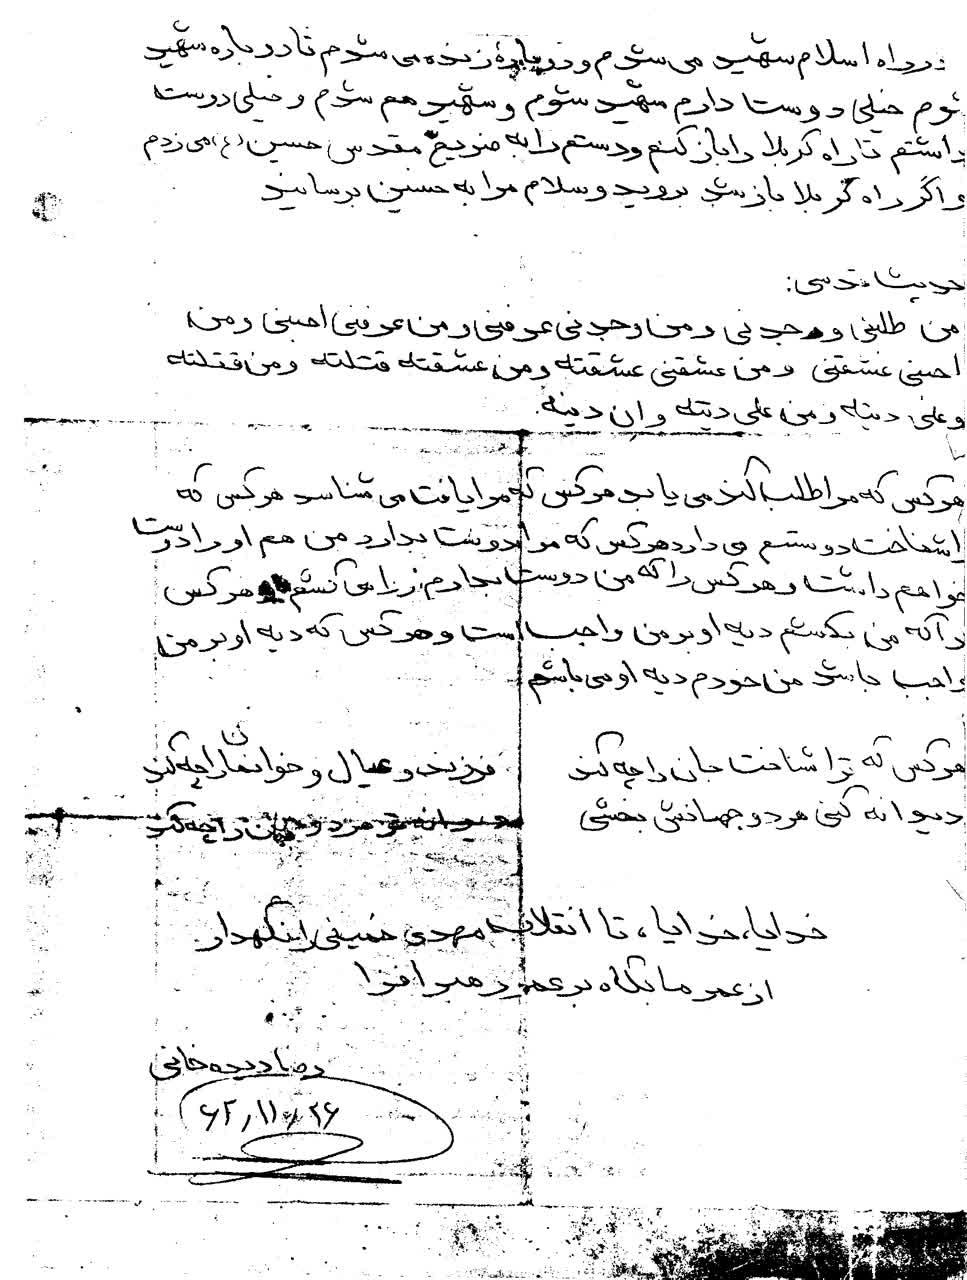 در راه اسلام شهید می شدم و دوباره زنده می شدم تا دوباره شهید
شوم خیلی دوست دارم شهید شوم و شهید هم شدم و خیلی دوست
داشتم تا راه کربلا را باز کنم و دستم را به ضریح مقدس حسین (ع) می زدم
و اگر راه کربلا باز شد بروید و سلام مرا به حسین برسانید
حدیث قدسی:
من طلبنی وجدنی و من وجدنی عرفنی و من عرفنی احبنی و من
احبنی عشقنی و من عشقنی عشقته و من عشقته قتلته و من قتلته
و علی دیته و من علی دیته و ان دیته.
هر کس که مرا طلب کند می یابد هر کس که مرا یافت می شناسد هر کس که
شناخت دوستم می دارد هر کس که مرا دوست بدارد من هم او را دوست
خواهم داشت و هر کس را که من دوست بدارم می کشم هر کس
را که من بکشم دیه او بر من واجب است و هر کس که دیه او بر من
واجب باشد من خودم دیه او می باشم
هر کس که ترا شناخت جان را چه کند فرزند و عیال و خوانمان را چه کند
دیوانه کنی هر دو جهانش بخشی دیوانه تو هر دو جهان را چه کند
خدایا، خدایا، تا انقلاب مهدی خمینی را نگهدار.
از عمر ما بکاه بر عمر رهبر افزا
رضا دیده خانی
۶۲/۱۱/۲۶